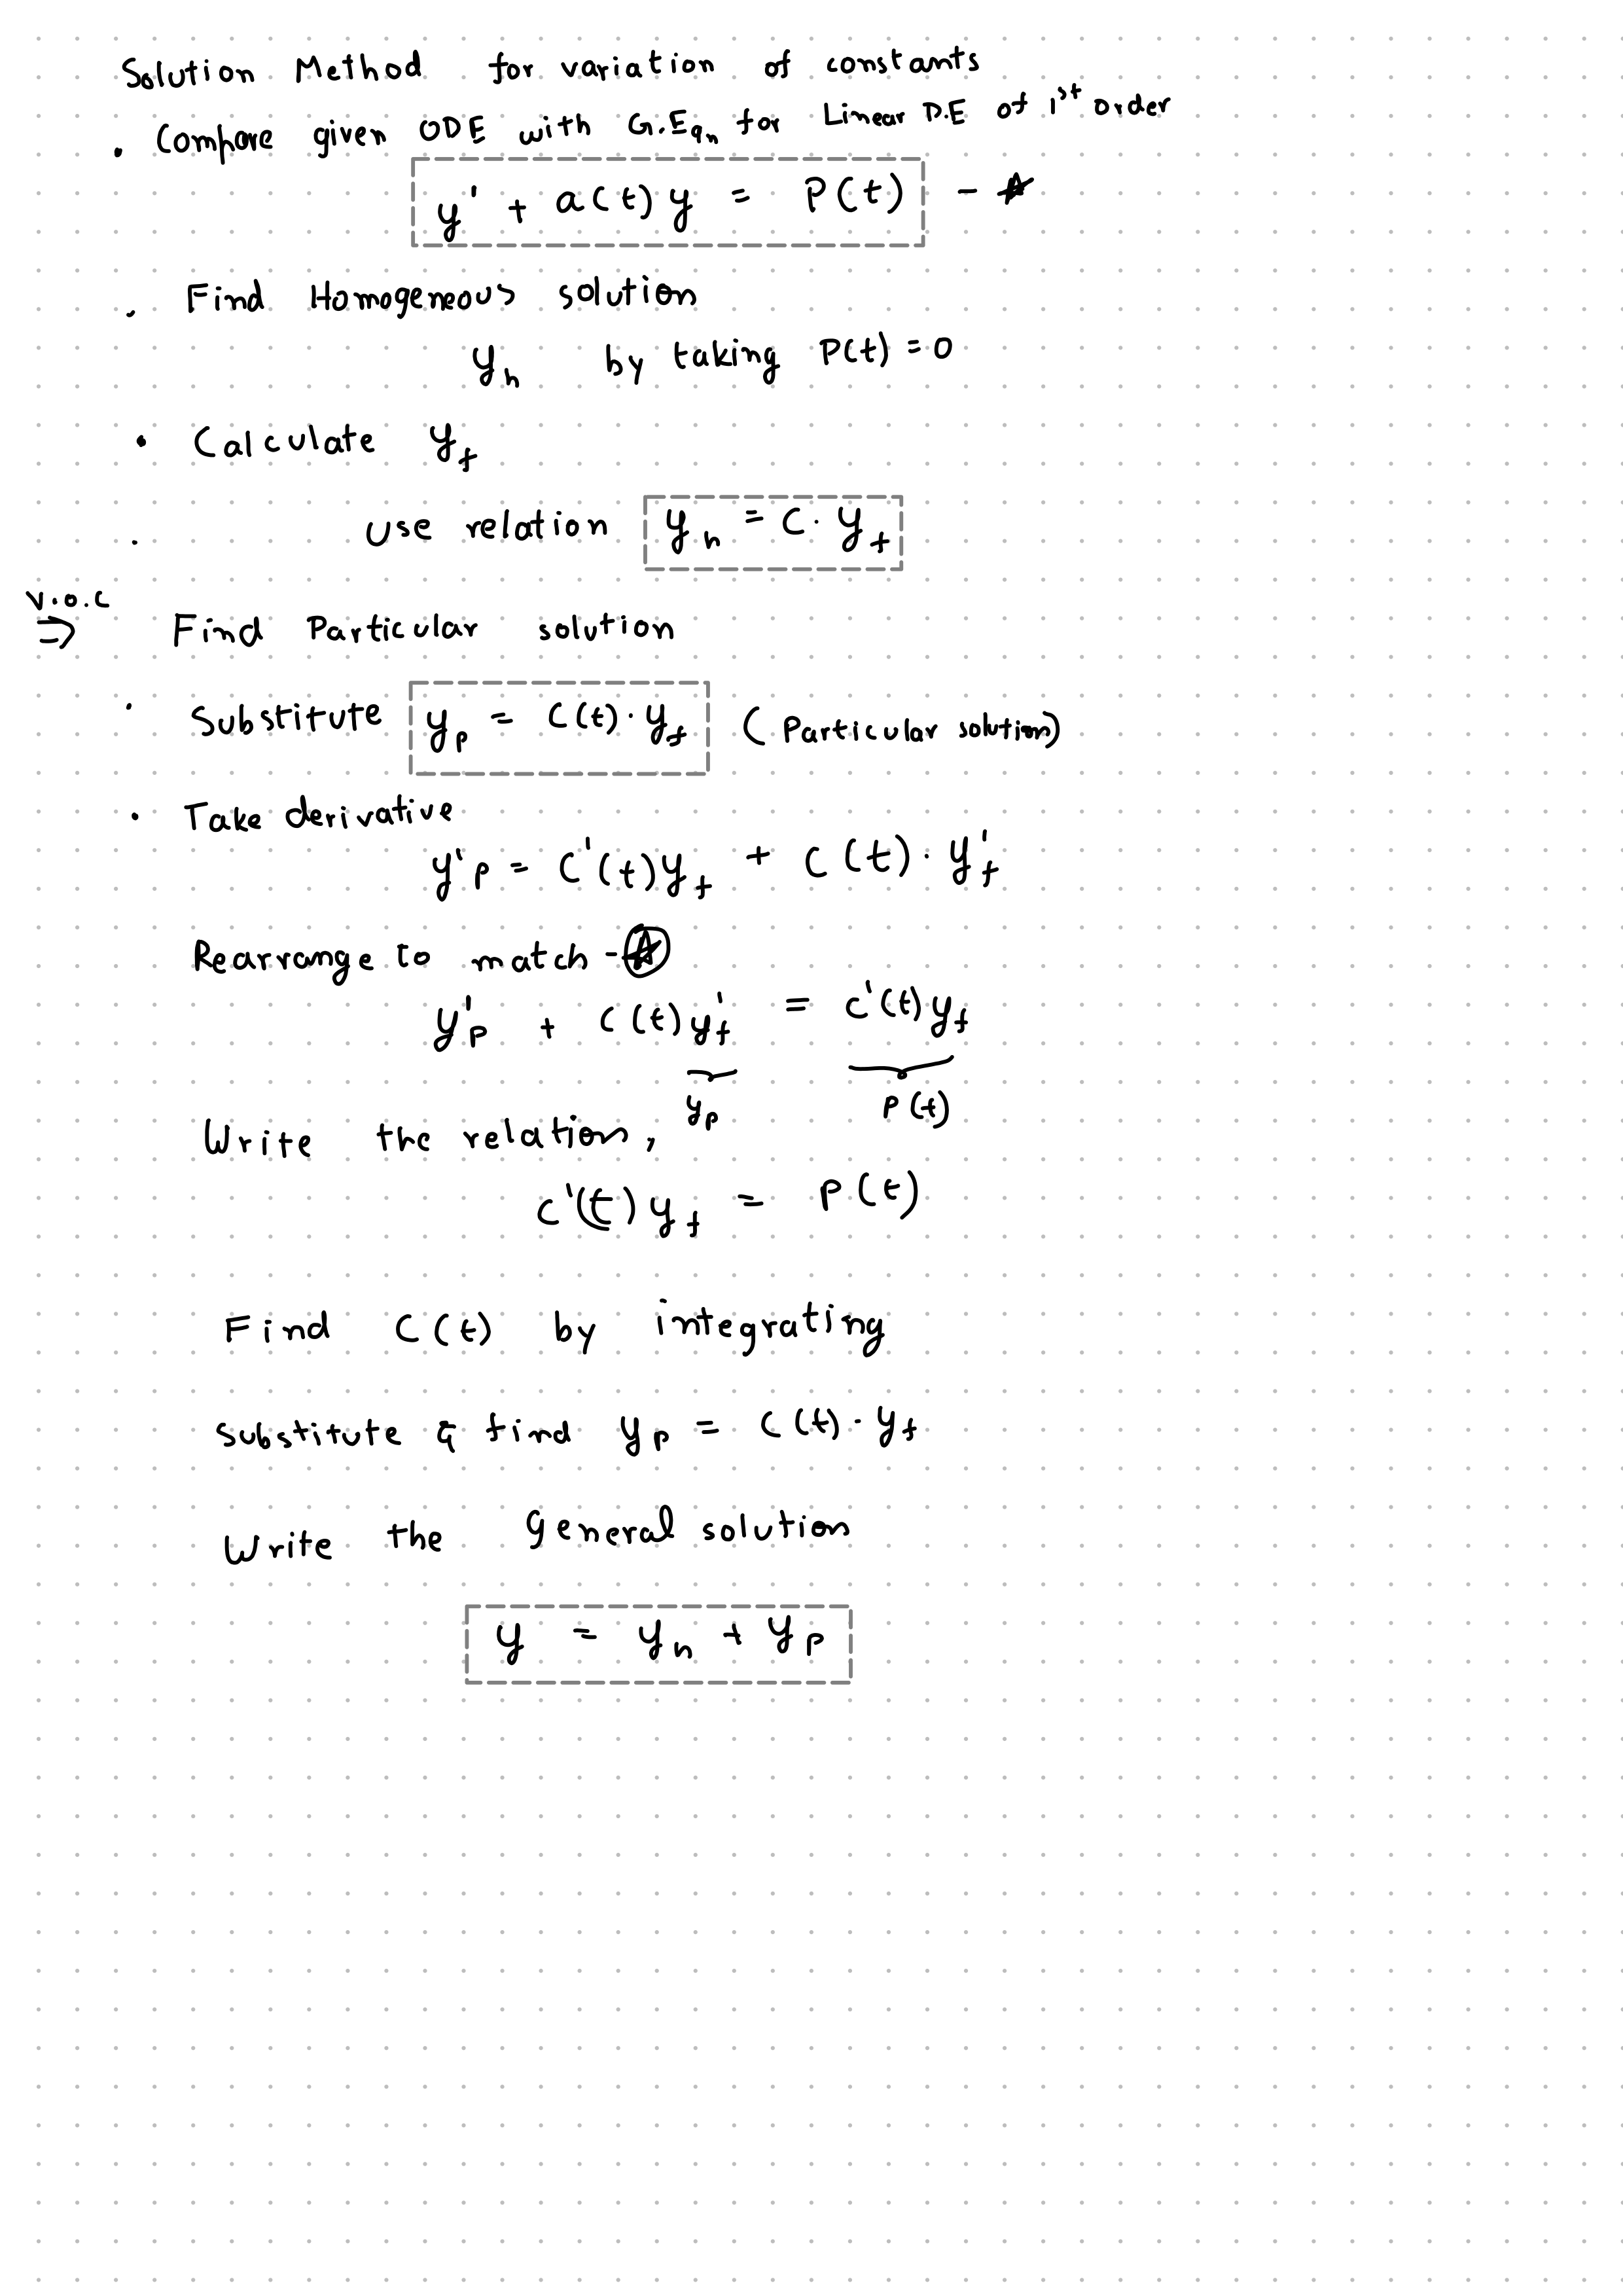 Solution Method for variation of constants
• Compare given ODE with G.Eqn for Linear D.E of 1st order
y' + a(t) y = P(t) - ☆
• Find Homogeneous solution
y_h by taking P(t) = 0
• Calculate y_f
• use relation y_h = C · y_f
v.o.c
⇒ Find Particular solution
• Substitute y_p = C(t) · y_f (Particular solution)
• Take derivative
y'_p = C'(t) y_f + C(t) · y'_f
Rearrange to match - ☆
y'_p + C(t) y'_f = C'(t) y_f
y_p P(t)
Write the relation,
C'(t) y_f = P(t)
Find C(t) by integrating
Substitute & find y_p = C(t) · y_f
Write the General solution
y = y_h + y_p